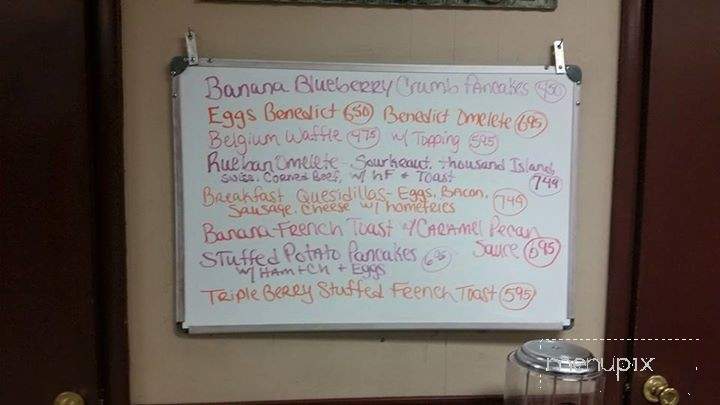 Banana Blueberry Crumb Pancakes 450
Eggs Benedict 650 Benedict Omelete 695
Belgium Waffle 475 w/ Topping 595
Rueban Omelete - Sourkeaut, thousand Island,
swiss, Corned Beef, w/ HF + Toast 749
Breakfast Quesidillas - Eggs, Bacon,
Sausage, Cheese w/ homefries 749
Banana-French Toast w/ CARAMEL Pecan
Sauce 695
Stuffed Potato Pancakes 695
w/ HAM + CH + Eggs
Triple Berry Stuffed French Toast 595
menupix